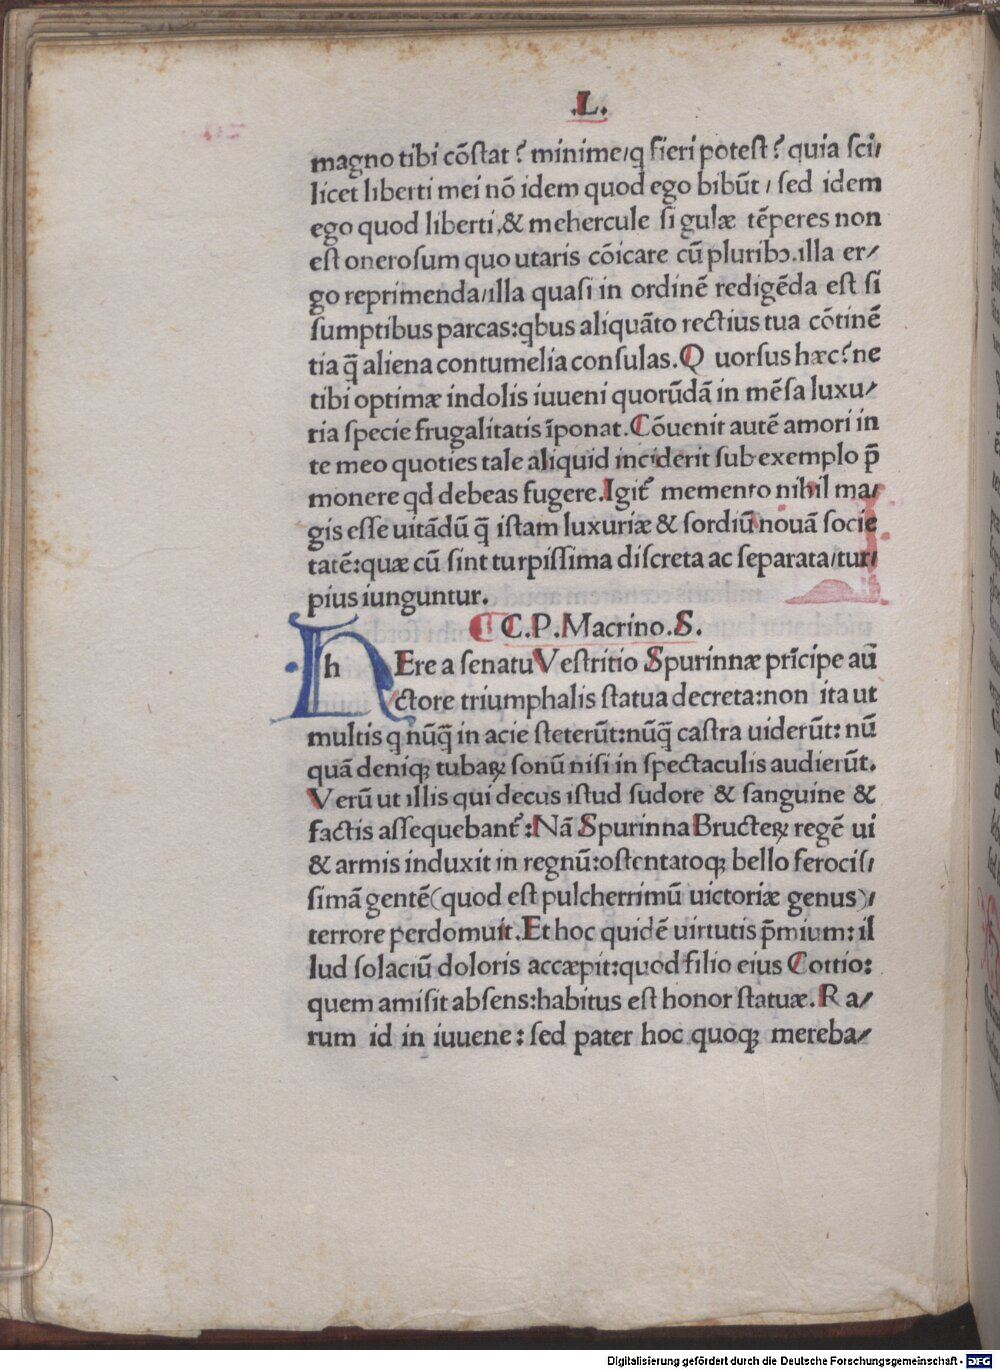 .L.
magno tibi cōſtat ? minime/q fieri poteſt ? quia ſci/
licet liberti mei nō idem quod ego bibūt / ſed idem
ego quod liberti,& mehercule ſi gulæ tēperes non
eſt oneroſum quo utaris cōicare cū pluribꝰ.illa er/
go reprimenda/illa quaſi in ordinē redigēda eſt ſi
ſumptibus parcas:qbus aliquāto rectius tua cōtinē
tia q̄ aliena contumelia conſulas.Q uorſus hæc?ne
tibi optimæ indolis iuueni quorūdā in mēſa luxu/
ria ſpecie frugalitatis īponat.Cōuenit autē amori in
te meo quoties tale aliquid inciderit ſub exemplo p̄
monere qd debeas fugere.Igit̄ memento nihil ma/
gis eſſe uitādū q̄ iſtam luxuriæ & ſordiū nouā ſocie
tatē:quæ cū ſint turpiſſima diſcreta ac ſeparata/tur/
pius iunguntur.
C.P.Macrino.S.
h Ere a ſenatu Veſtritio Spurinnæ prīcipe au
ctore triumphalis ſtatua decreta:non ita ut
multis q nūq̄ in acie ſteterūt:nūq̄ caſtra uiderūt: nū
quā deniqꝫ tubaꝝ ſonū niſi in ſpectaculis audierūt.
Verū ut illis qui decus iſtud ſudore & ſanguine &
factis aſſequebant̄ :Nā Spurinna Bructeꝝ regē ui
& armis induxit in regnū:oſtentatoqꝫ bello ferociſ/
ſimā gentē(quod eſt pulcherrimū uictoriæ genus)/
terrore perdomuit.Et hoc quidē uirtutis p̄mium: il
lud ſolaciū doloris accæpit:quod filio eius Cottio:
quem amiſit abſens:habitus eſt honor ſtatuæ.R a/
rum id in iuuene : ſed pater hoc quoqꝫ mereba/
Digitalisierung gefördert durch die Deutsche Forschungsgemeinschaft - DFG